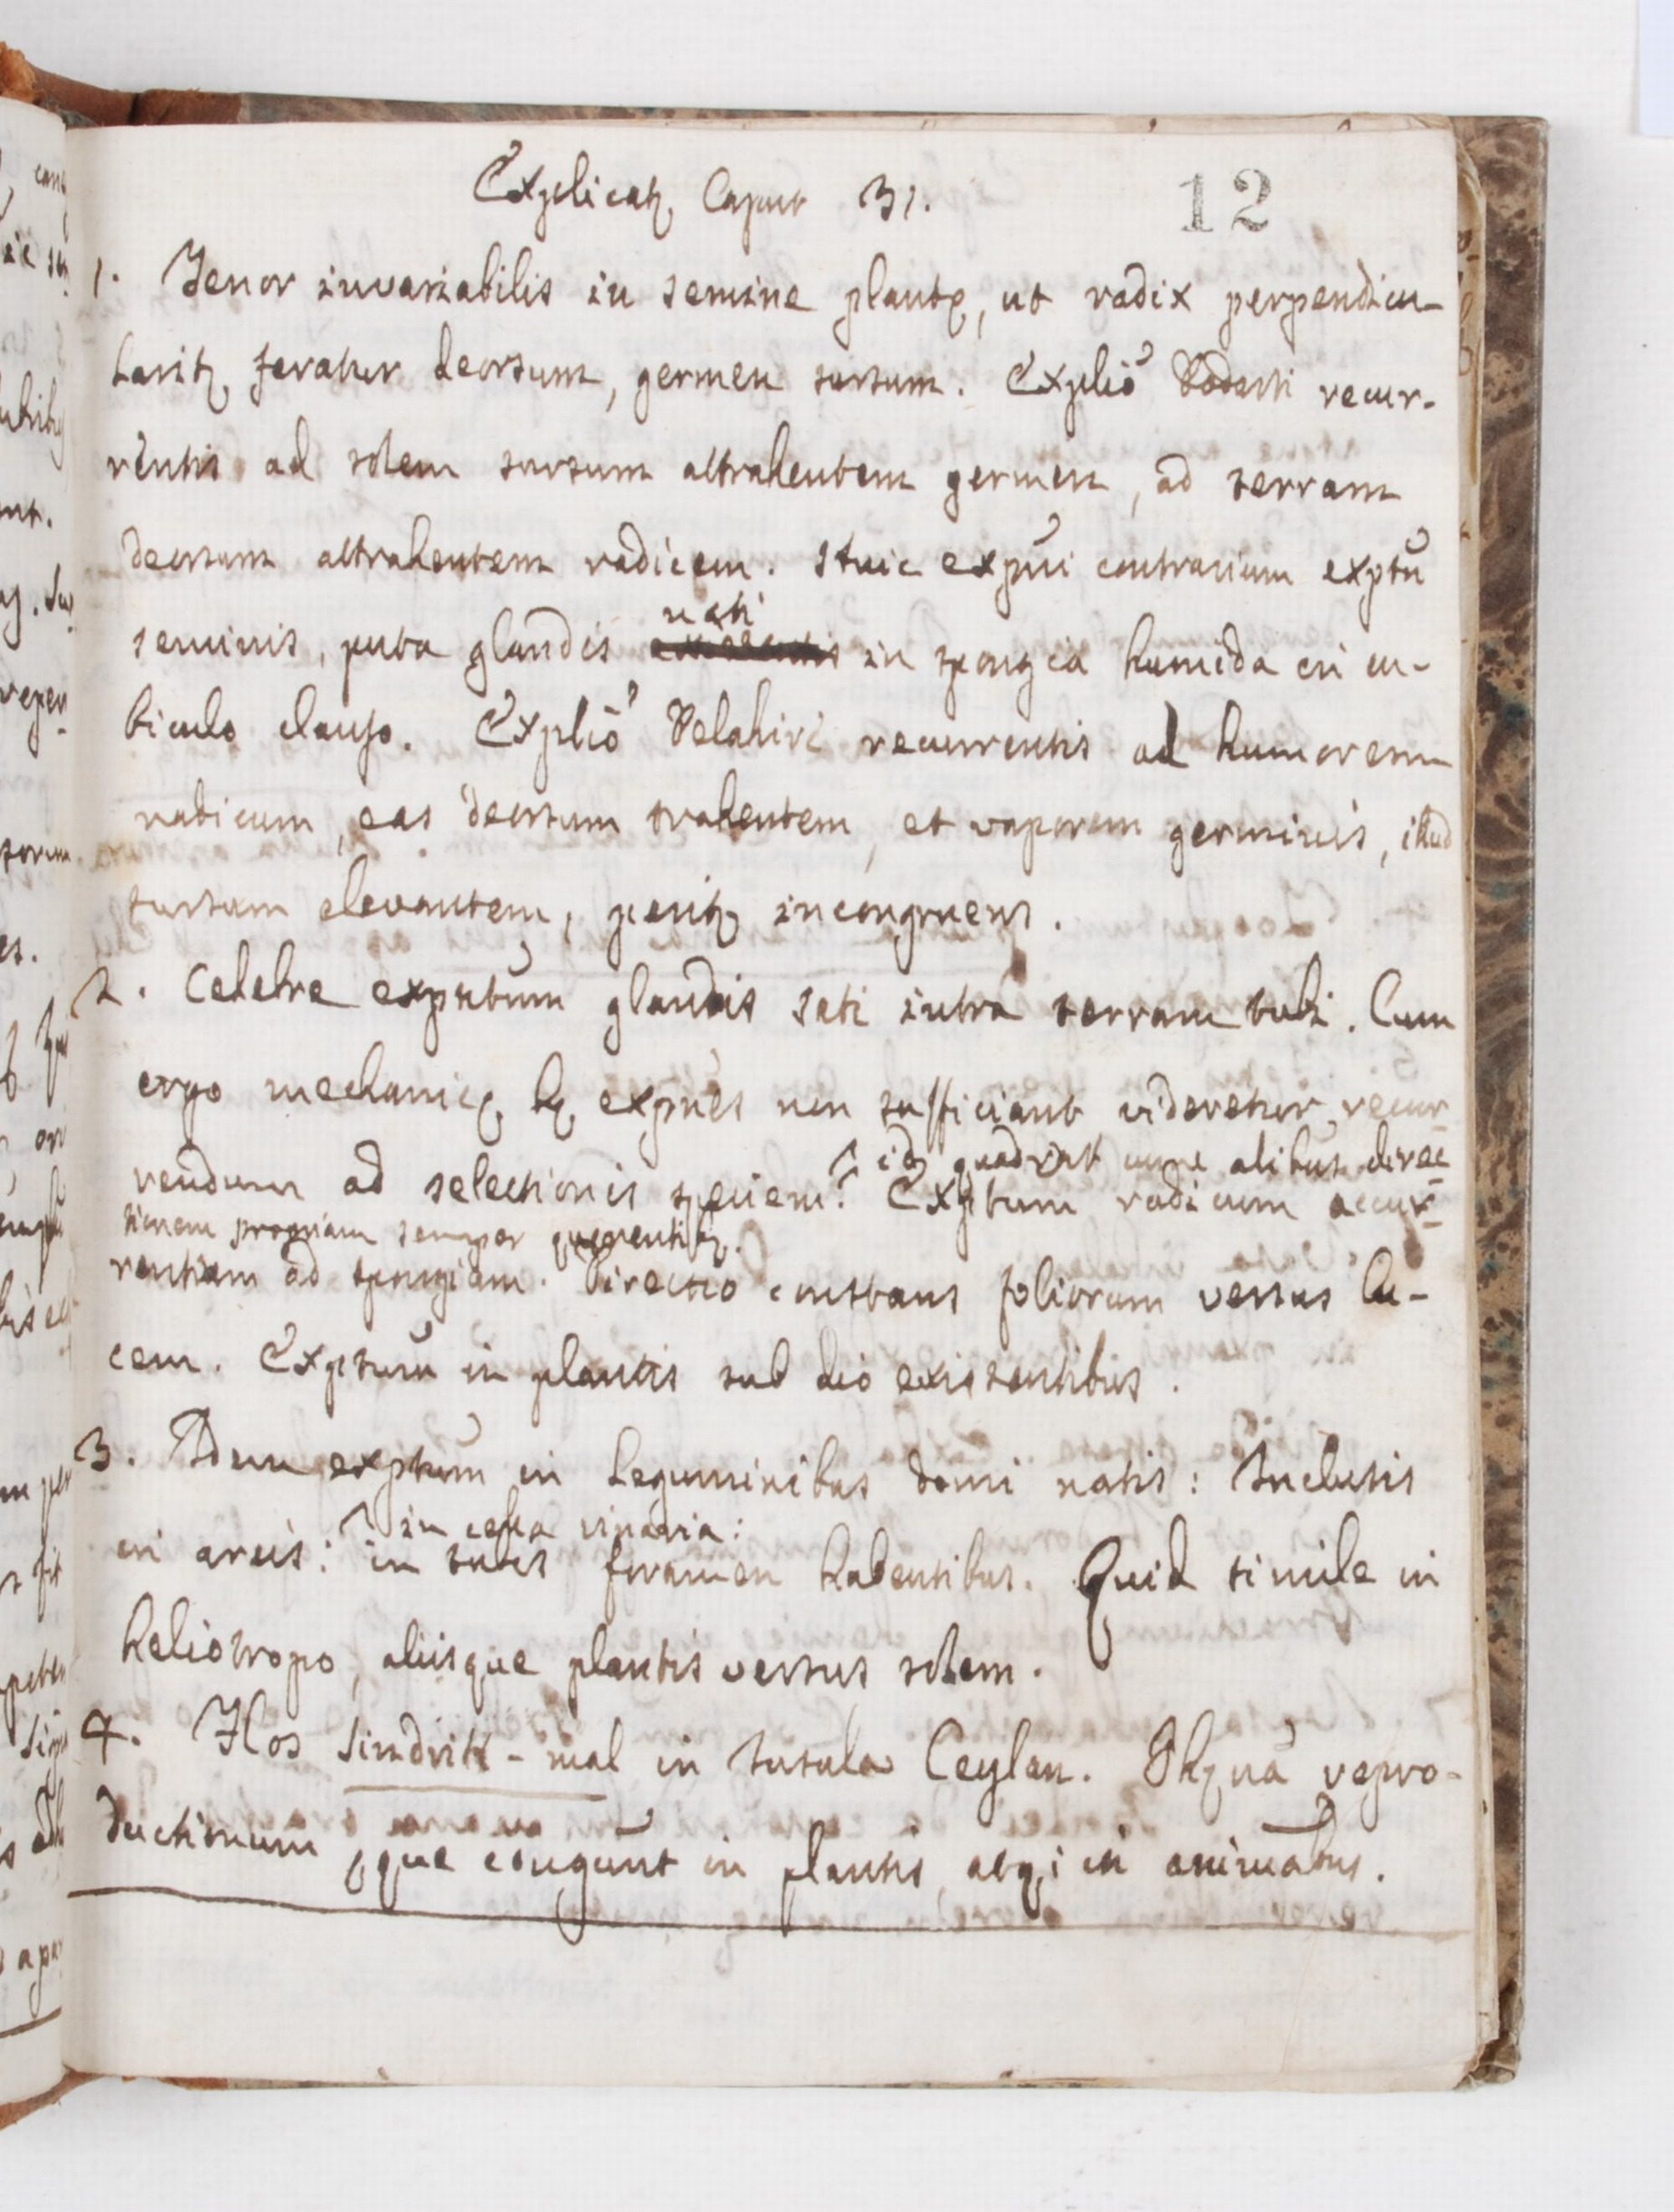 Explicatę Caput 31.
12
1. Tenor invariabilis in semine plantę, ut radix perpendicu-
laritę feratur deorsum, germen sursum. Explió Dodarti recur-
rentis ad solem sursum attrahentem germen, ad terram
deorsum attrahentem radicem. Huic expúi contrarium exptú
nati
seminis, puta glandis in spongia humida in cu-
biculo clauso. Explió Delahiri recurrentis ad humorem
radicum, eas deorsum trahentem, et vaporem germinis, illud
sursum elevantem, paritę incongruens.
2. Celebre exptum glandis sati intra terram tubi. Cum
ergo mechanicę hę expnes non sufficiant videretur recur
idq quadrat cum alibus direc
rendum ad selectionis speciem? Exptum radicum accur-
tionem propriam semper quęrentibq.
rentium ad spongiam. Directio constans foliorum versus lu-
cem. Exptum in plantis sub dio existentibus.
3. Idem exptum in leguminibus domi natis: Inclusis
in cella vinaria:
in arcis: in tubis foramen habentibus. Quid simile in
heliotropo, aliisque plantis versus solem.
4. Flos Sindrik-mal in Insula Ceylan. Phęna repro-
ductionum, que contgunt in plantis, atq; in animabus.